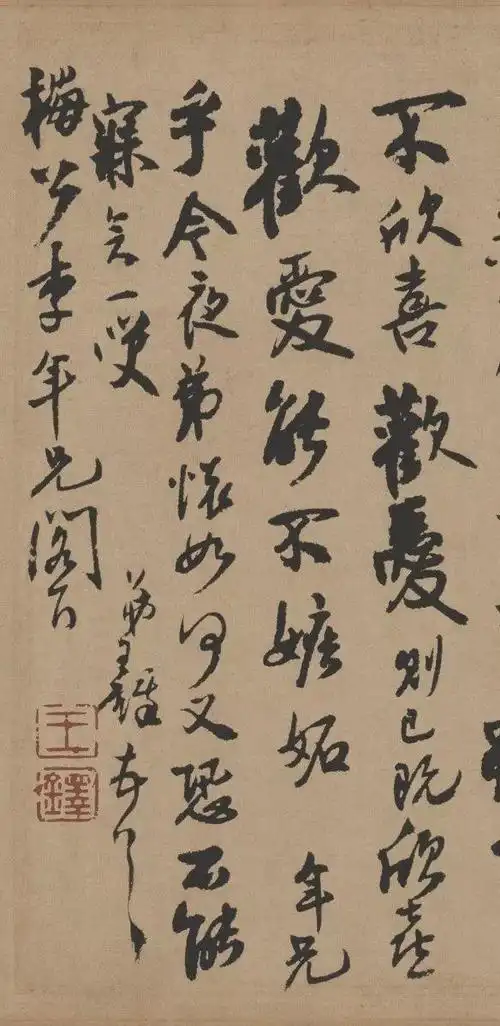 不欣喜歡愛則已既欣喜
歡愛能不嫉妬年兄
乎今夜弟懷如何又恐不能
寐矣一叟
弟王鐸頓首
梅公李年兄閣下
王鐸